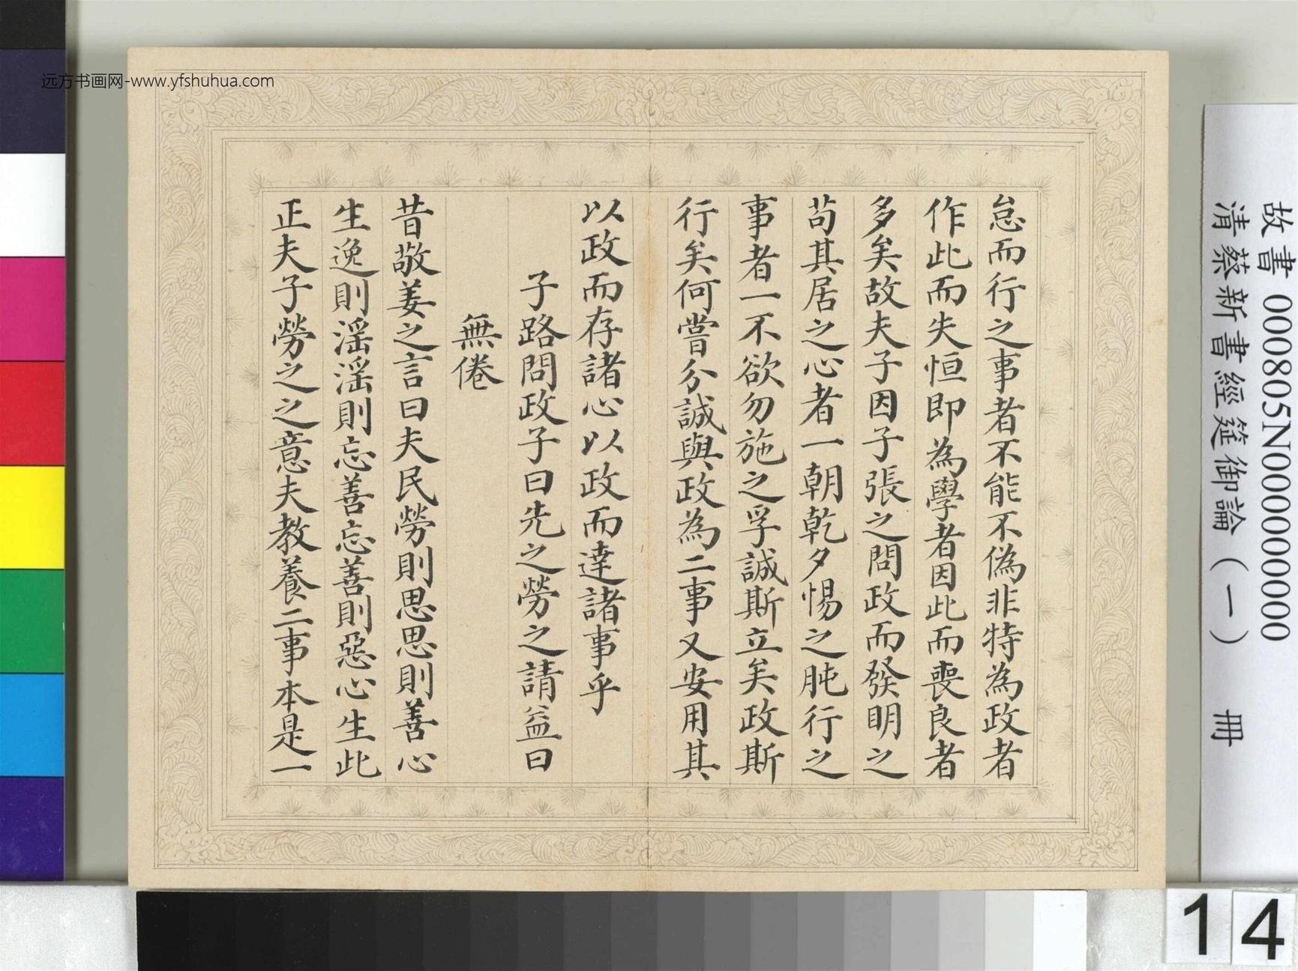 远方书画网-www.yfshuhua.com
怠而行之事者不能不偽非特為政者
作此而失恒即為學者因此而喪良者
多矣故夫子因子張之問政而發明之
苟其居之心者一朝乾夕惕之肫行之
事者一不欲勿施之孚誠斯立矣政斯
行矣何嘗分誠與政為二事又安用其
以政而存諸心以政而達諸事乎
子路問政子曰先之勞之請益曰
無倦
昔敬姜之言曰夫民勞則思思則善心
生逸則滛滛則忘善忘善則惡心生此
正夫子勞之之意夫教養二事本是一
故書 000805N000000000
清蔡新書經筵御論(一) 冊
14